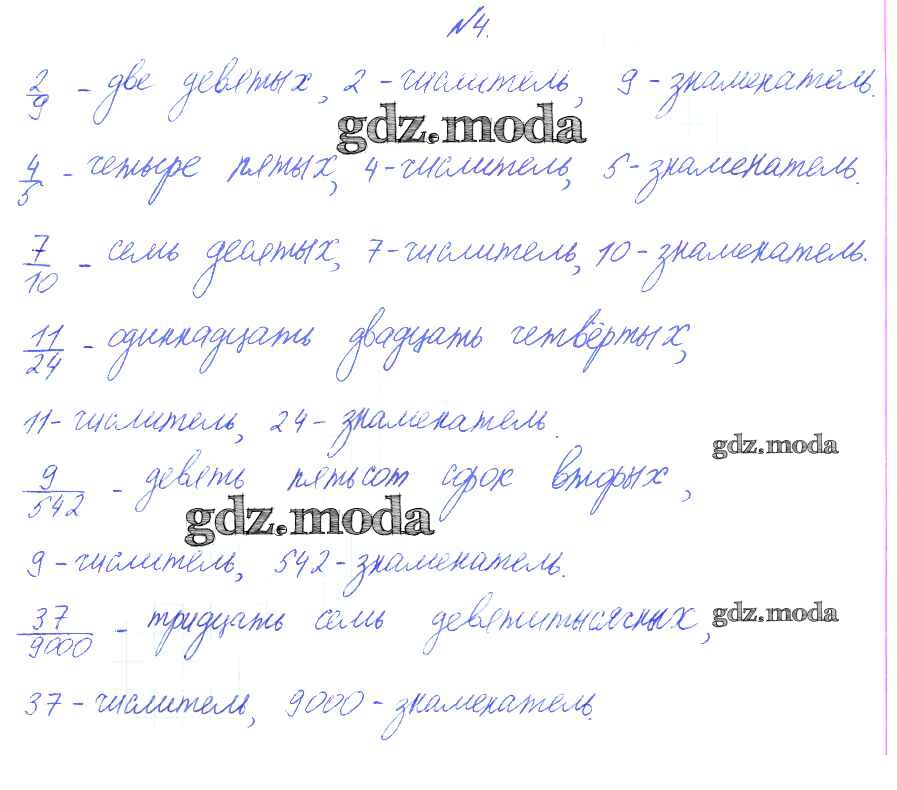 №4.
2/9 - две девятых, 2 - числитель, 9 - знаменатель.
gdz.moda
4/5 - четыре пятых, 4 - числитель, 5 - знаменатель.
7/10 - семь десятых, 7 - числитель, 10 - знаменатель.
11/24 - одиннадцать двадцать четвёртых,
11 - числитель, 24 - знаменатель.
gdz.moda
9/542 - девять пятьсот сорок вторых,
gdz.moda
9 - числитель, 542 - знаменатель.
37/9000 - тридцать семь девятитысячных,
gdz.moda
37 - числитель, 9000 - знаменатель.